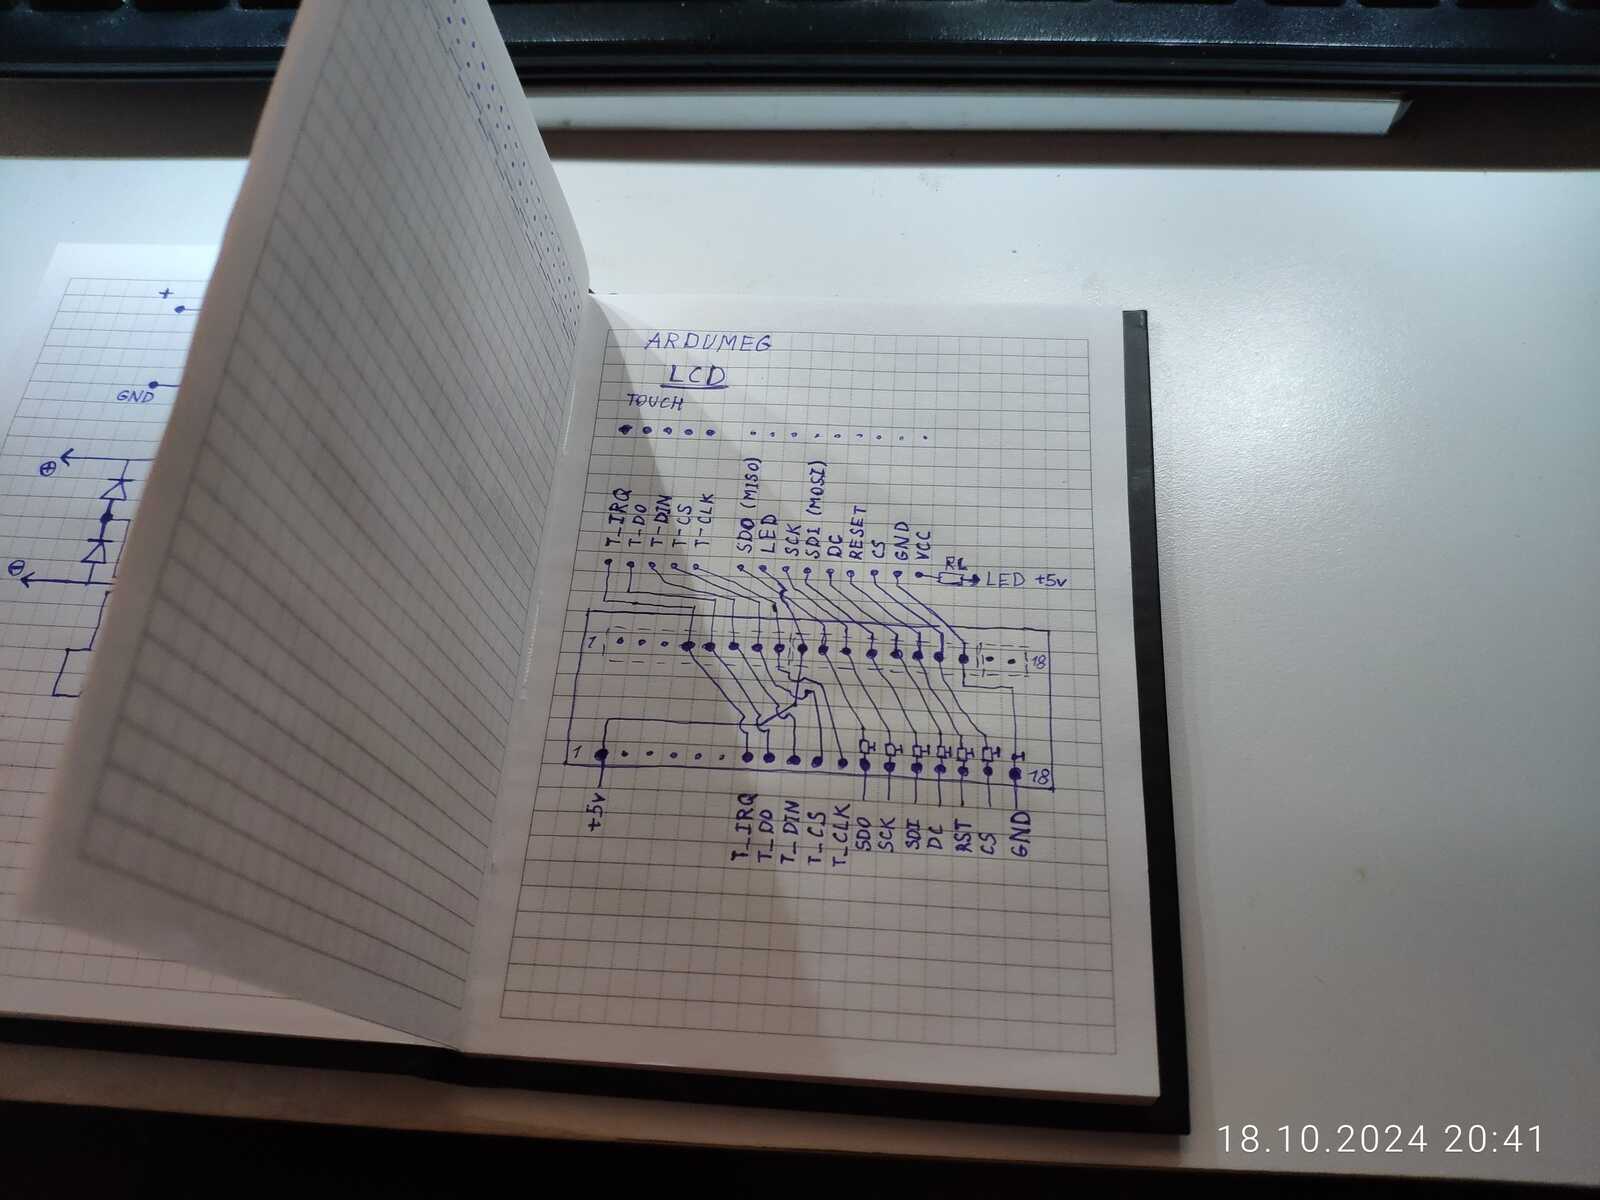 ARDUMEG
LCD
TOUCH
T_IRQ
T_DO
T-DIN
T-CS
T-CLK
SDO (MISO)
LED
SCK
SDI (MOSI)
DC
RESET
CS
GND
VCC
LED +5v
1
18
1
18
+5v
T_IRQ
T_DO
T_DIN
T_CS
T_CLK
SDO
SCK
SDI
DC
RST
CS
GND
+
GND
18.10.2024 20:41